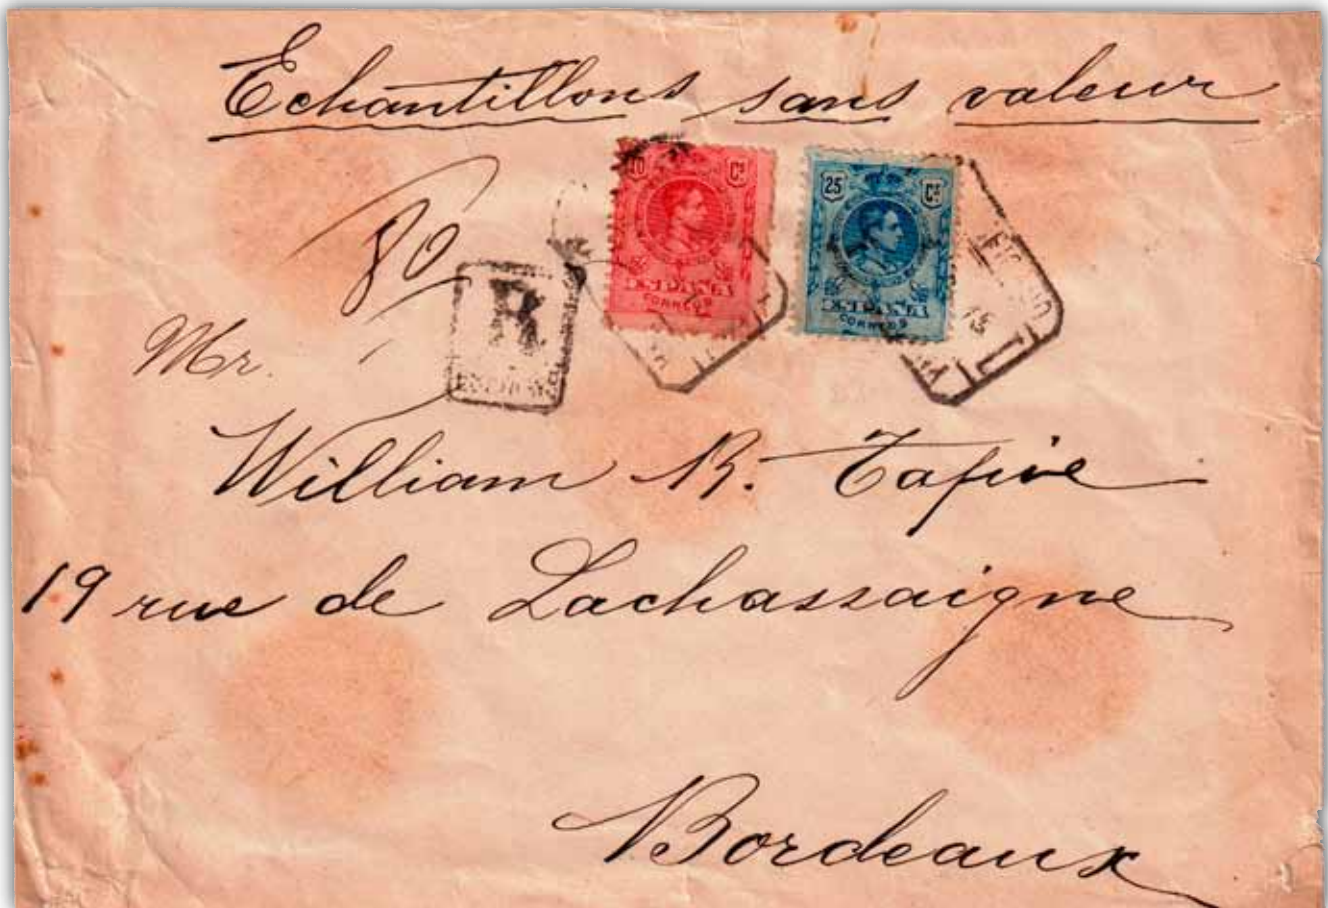 Echantillons sans valeur
10 Cs
25 Cs
80
R
ESPAÑA
CORREOS
ESPAÑA
CORREOS
15
Mr.
William B. Tapie
19 rue de Lachassaigne
Bordeaux